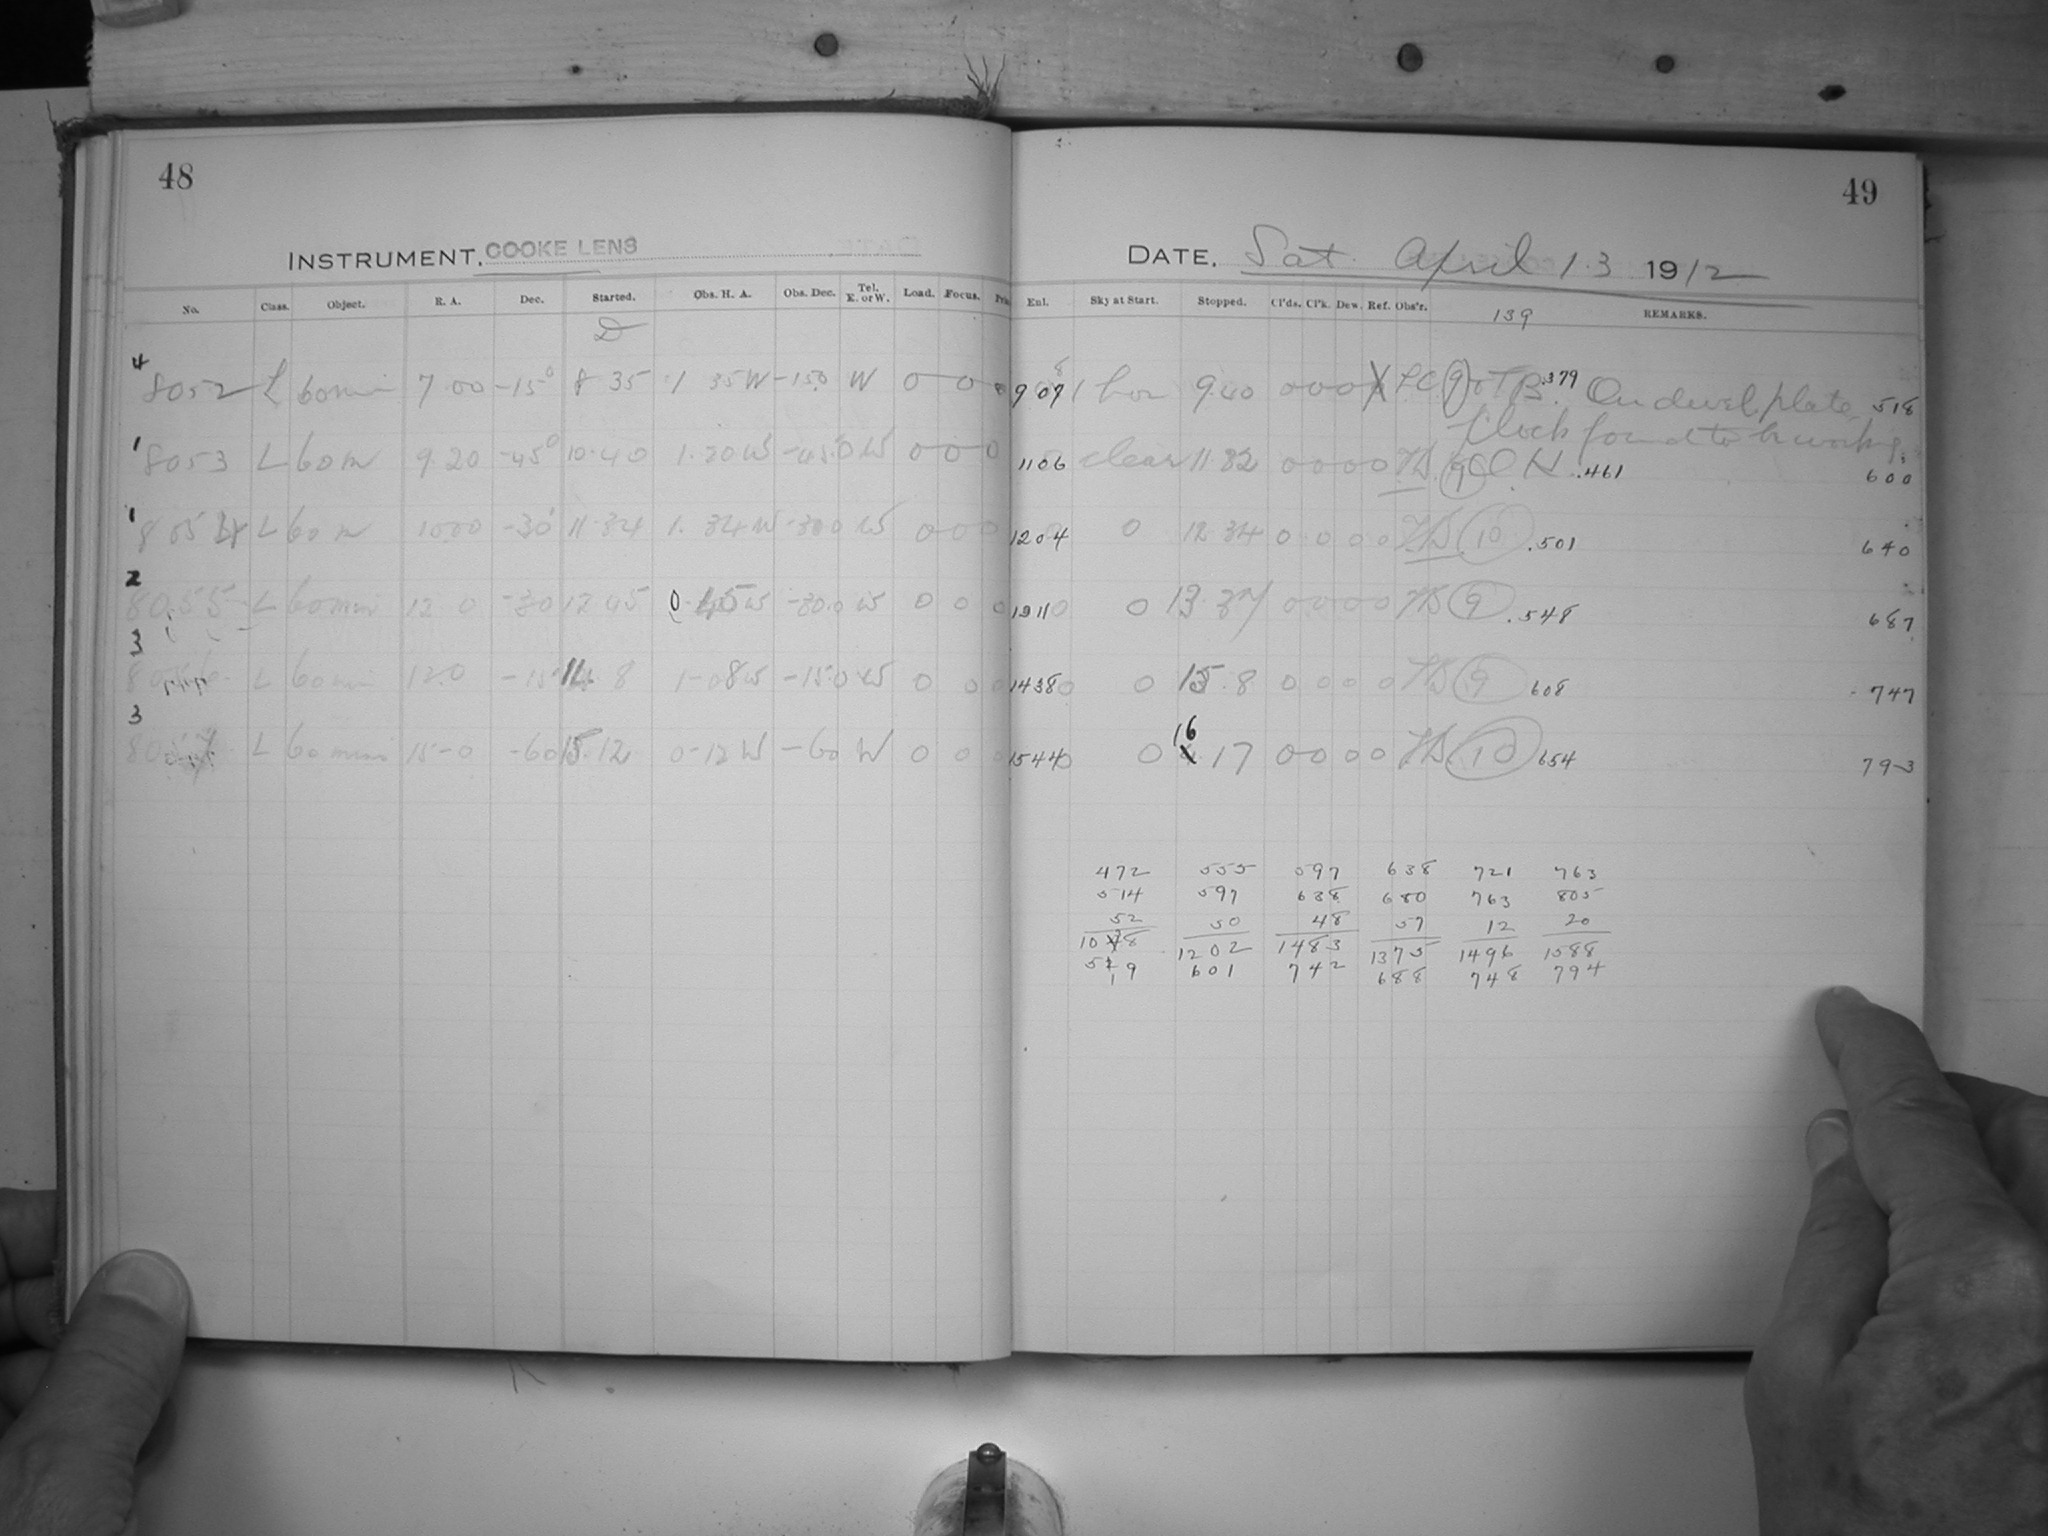 48
INSTRUMENT. COOKE LENS
No. Class. Object. R. A. Dec. Started. Obs. H. A. Obs. Dec. Tel. E. or W. Load. Focus.
D
4
8052 L 60 min 7 00 -15° 8 35 1 35 W -15.0 W 0 0
1
8053 L 60 m 9.20 -45° 10.40 1.20 W -45.0 W 0 0 0
1
8054 L 60 m 10 00 -30 11.34 1. 34 W -30 0 W 0 0 0
2
8055 L 60 min 12 0 -30 12 45 0. 45 W -30.0 W 0 0 0
3
L 60 min 12.0 -15 14 8 1-08 W -15.0 W 0 0 0
3
L 60 min 15-0 -60 15.12 0-12 W -60 W 0 0 0
49
DATE. Sat. April 13 1912
Enl. Sky at Start. Stopped. Cl'ds. Cl'k. Dew. Ref. Obs'r. REMARKS.
139
1 hor 9.40 0 0 0 9 .379 On devel. plate 518
Clock found to be working.
1106 clear 11 32 0 0 0 0 9 .461 600
1204 0 12 34 0 0 0 0 10 .501 640
0 13.37 0 0 0 0 9 .548 687
1438 0 15.8 0 0 0 0 9 608 747
1544 0 16 17 0 0 0 0 10 654 793
472 555 597 638 721 763
514 597 638 680 763 805
52 50 48 57 12 20
1038 1202 1483 1375 1496 1588
519 601 742 688 748 794